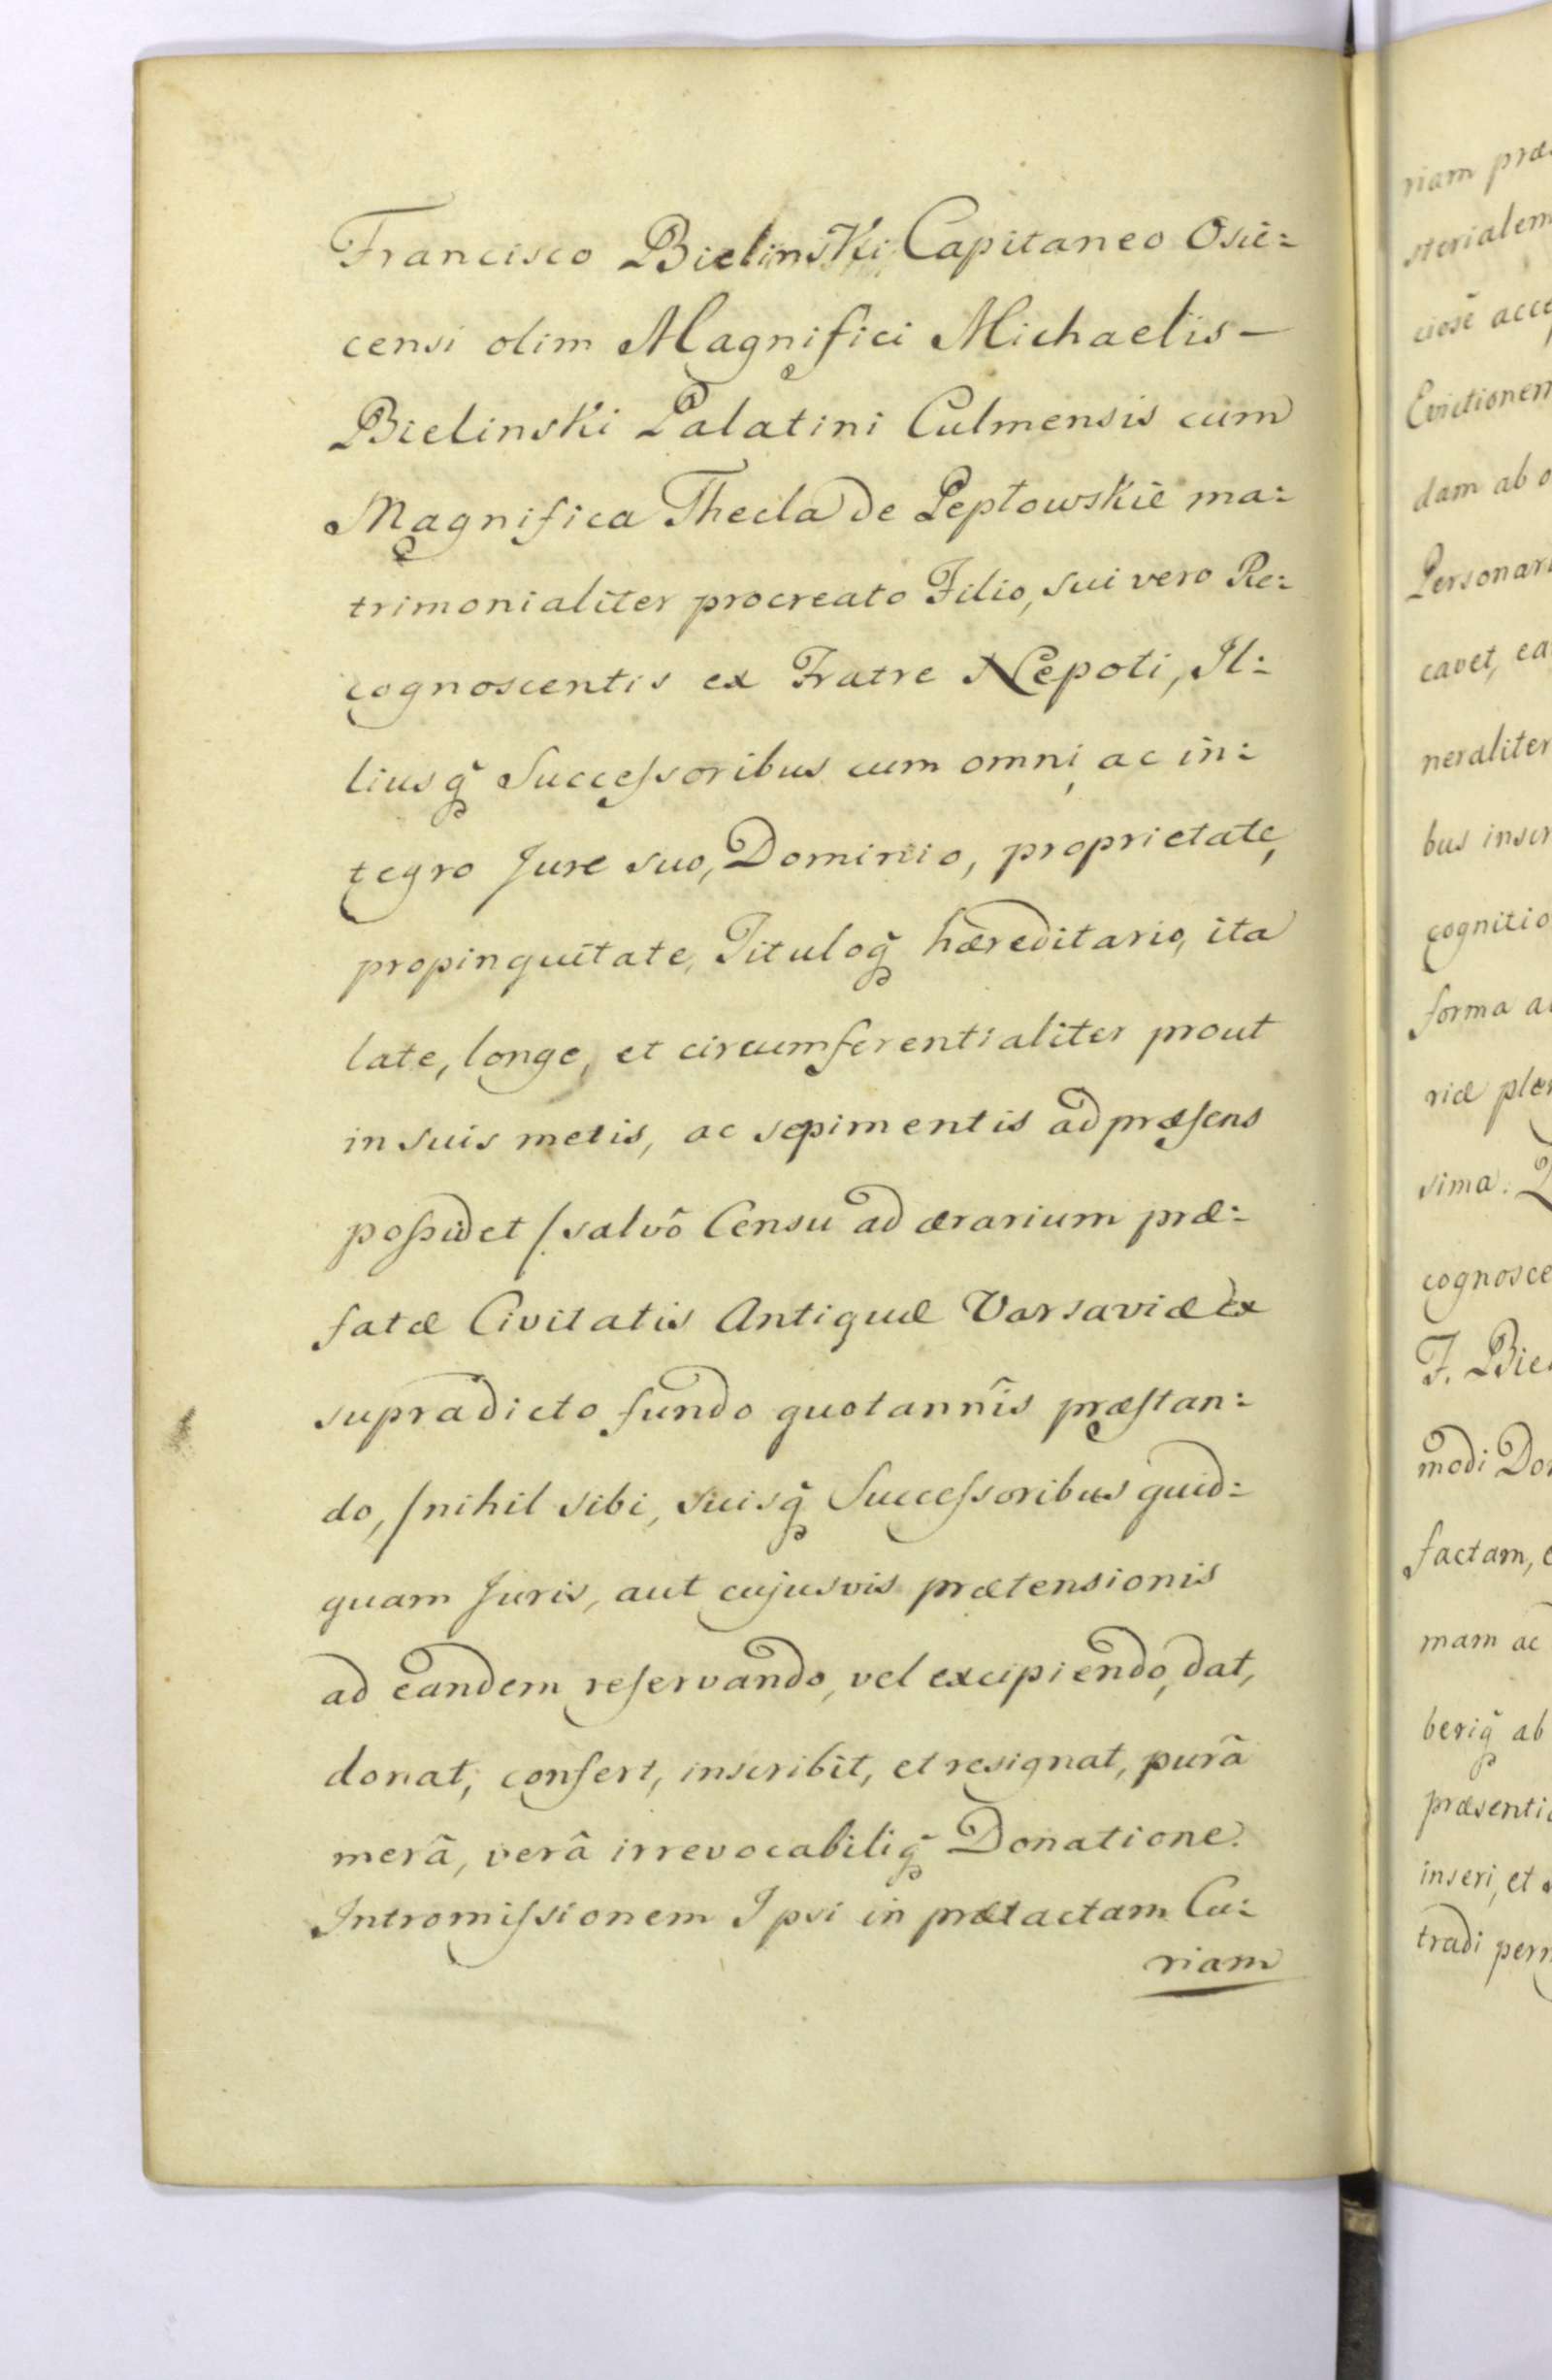 Francisco Bielinski Capitaneo Osie:
censi olim Magnifici Michaelis —
Bielinski Palatini Culmensis cum
Magnifica Thecla de Peptowskie ma:
trimonialiter procreato Filio, sui vero Re:
cognoscentis ex Fratre Nepoti, Il:
liusq̃ Succeſsoribus cum omni, ac in:
tegro Jure suo, Dominio, proprietate,
propinquitate, Tituloq̃ hæreditario, ita
late, longe, et circumferentialiter prout
in suis metis, ac sepimentis ad præſens
poſsidet /: salvô Censu ad ærarium præ:
fatæ Civitatis Antiquæ Varsaviæ Ex
supradicto fundo quotannîs præſtan:
do, / nihil sibi, suisq̃ Succeſsoribus quid:
quam Juris, aut cujusvis prætensionis
ad eandem reſervando, vel excipiendo, dat,
donat, confert, inscribit, et resignat, purâ
merâ, verâ irrevocabiliq̃ Donatione.
Intromiſsionem Ipsi in prætactam Cu:
riam
riam præ
sterialem
ciosè acce
Evictionem
dam ab o
Personar
cavet, ea
neraliter
bus inscr
cognitio
forma a
riæ plen
sima.
cognosce
F. Biel
modi Do
factam, e
mam ac
beriq̃ ab
præsenti
inseri, et
tradi perm